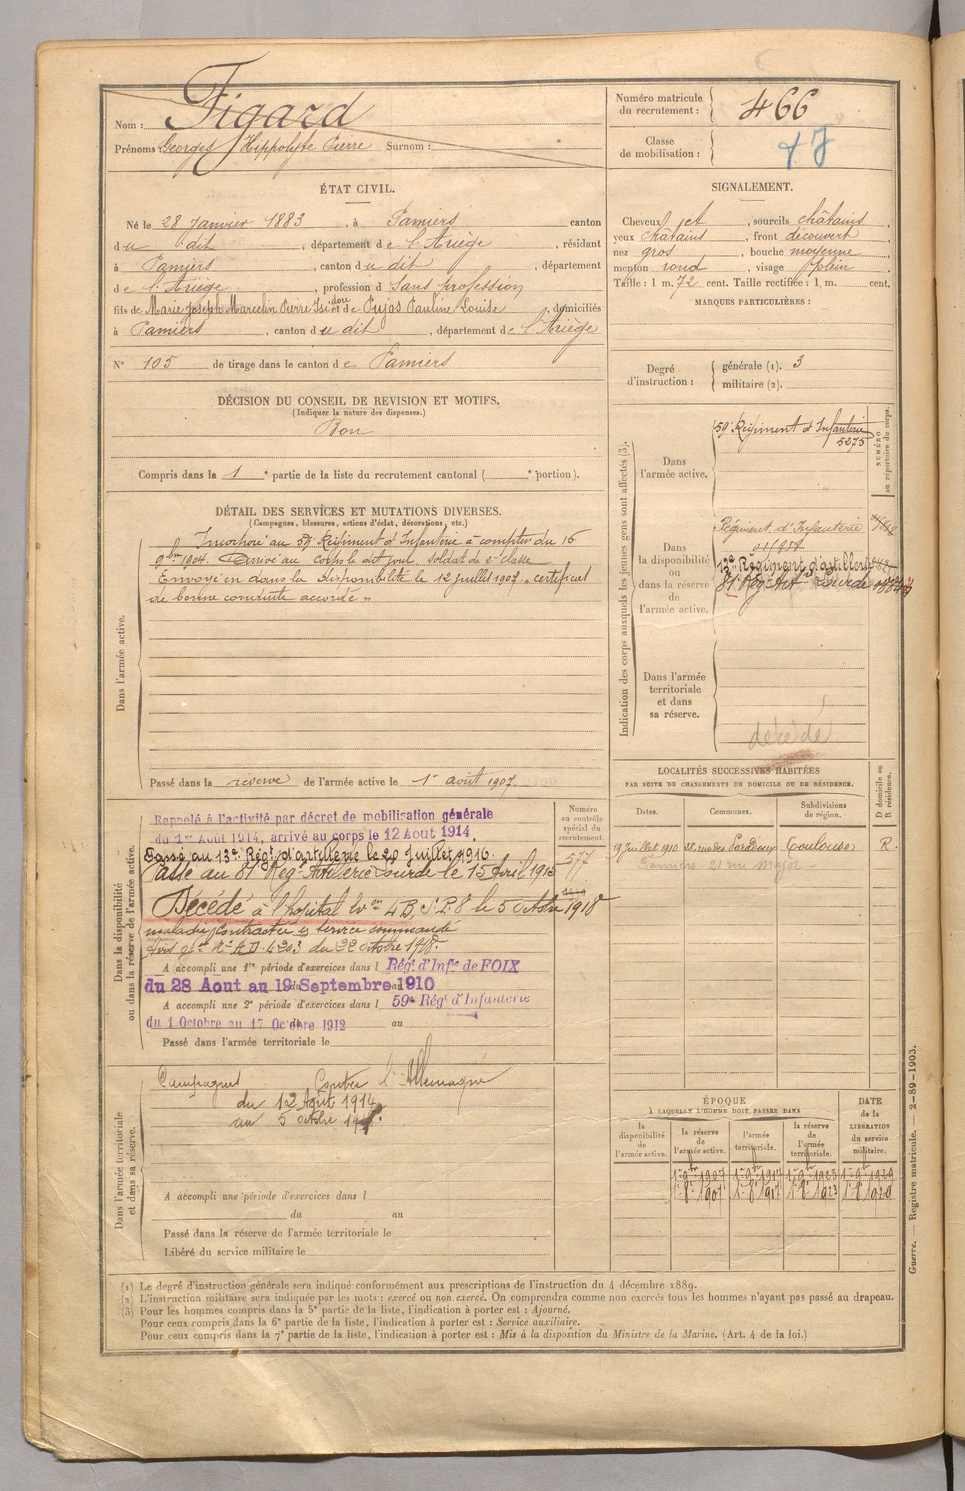 Nom : Figard
Prénoms : Georges Hippolyte Pierre Surnom :
Numéro matricule du recrutement : 466
Classe de mobilisation :
ÉTAT CIVIL.
Né le 28 Janvier 1883, à Pamiers canton
du dit, département de l'Ariège, résidant
à Pamiers, canton du dit, département
de l'Ariège, profession de Sans profession
fils de Marie Joseph Marcelin Pierre Isidore et de Pujos Pauline Louise, domiciliés
à Pamiers, canton du dit, département de l'Ariège
N° 105 de tirage dans le canton de Pamiers
SIGNALEMENT.
Cheveux jet, sourcils châtains,
yeux châtains, front découvert,
nez gros, bouche moyenne,
menton rond, visage plein
Taille : 1 m. 72 cent. Taille rectifiée : 1 m. cent.
MARQUES PARTICULIÈRES :
Degré d'instruction : générale (1). 3
militaire (2).
DÉCISION DU CONSEIL DE REVISION ET MOTIFS.
(Indiquer la nature des dispenses.)
Bon
Compris dans la 1e partie de la liste du recrutement cantonal ( e portion).
DÉTAIL DES SERVICES ET MUTATIONS DIVERSES.
(Campagnes, blessures, actions d'éclat, décorations, etc.)
Dans l'armée active.
Incorporé au 59e Régiment d'Infanterie à compter du 16
9bre 1904. Arrivé au corps le dit jour, soldat de 2e classe
Envoyé en dans la disponibilité le 12 juillet 1907. certificat
de bonne conduite accordé "
Passé dans la réserve de l'armée active le 1er août 1907.
Indication des corps auxquels les jeunes gens sont affectés (3).
NUMÉRO au répertoire du corps.
Dans l'armée active.
59e Régiment d'Infanterie
5275
Dans la disponibilité ou dans la réserve de l'armée active.
Régiment d'Infanterie
13e Régiment d'artillerie
81e Rég. Art. Lourde
Dans l'armée territoriale et dans sa réserve.
décédé
LOCALITÉS SUCCESSIVES HABITÉES
PAR SUITE DE CHANGEMENTS DE DOMICILE OU DE RÉSIDENCE.
Dates. Communes. Subdivisions de région. D domicile ou R résidence.
19 Juillet 1910 Toulouse R.
Pamiers 21 rue Major
Dans la disponibilité ou dans la réserve de l'armée active.
Numéro au contrôle spécial du recrutement.
577
Rappelé à l'activité par décret de mobilisation générale
du 1er Août 1914, arrivé au corps le 12 Aout 1914.
Passé au 13e Régt d'artillerie le 20 Juillet 1916.
Passé au 81e Régt Artillerie Lourde le 15 Avril 1918
Décédé à l'hôpital le 5 Octobre 1918
maladie contractée en service commandé
du 22 octobre 1918.
A accompli une 1re période d'exercices dans l Régt d'Infie de FOIX
du 28 Aout au 19 Septembre 1910
A accompli une 2e période d'exercices dans l 59e Régt d'Infanterie
du 1 Octobre au 17 Octobre 1912 au
Passé dans l'armée territoriale le
Dans l'armée territoriale et dans sa réserve.
Campagnes Contre l'Allemagne
du 12 Août 1914
au 5 octobre
A accompli une période d'exercices dans l
du au
Passé dans la réserve de l'armée territoriale le
Libéré du service militaire le
ÉPOQUE
À LAQUELLE L'HOMME DOIT PASSER DANS
la disponibilité de l'armée active. la réserve de l'armée active. l'armée territoriale. la réserve de l'armée territoriale. DATE de la LIBÉRATION du service militaire.
1er 9bre 1907 1er 9bre 1917 1er 9bre 1923 1er 9bre 1929
1er 8bre 1907 1er 8bre 1917 1er 8bre 1923 1er 8bre 1929
(1) Le degré d'instruction générale sera indiqué conformément aux prescriptions de l'instruction du 4 décembre 1889.
(2) L'instruction militaire sera indiquée par les mots : exercé ou non exercé. On comprendra comme non exercés tous les hommes n'ayant pas passé au drapeau.
(3) Pour les hommes compris dans la 5e partie de la liste, l'indication à porter est : Ajourné.
Pour ceux compris dans la 6e partie de la liste, l'indication à porter est : Service auxiliaire.
Pour ceux compris dans la 7e partie de la liste, l'indication à porter est : Mis à la disposition du Ministre de la Marine. (Art. 4 de la loi.)
Guerre. — Registre matricule. — 2-89-1903.